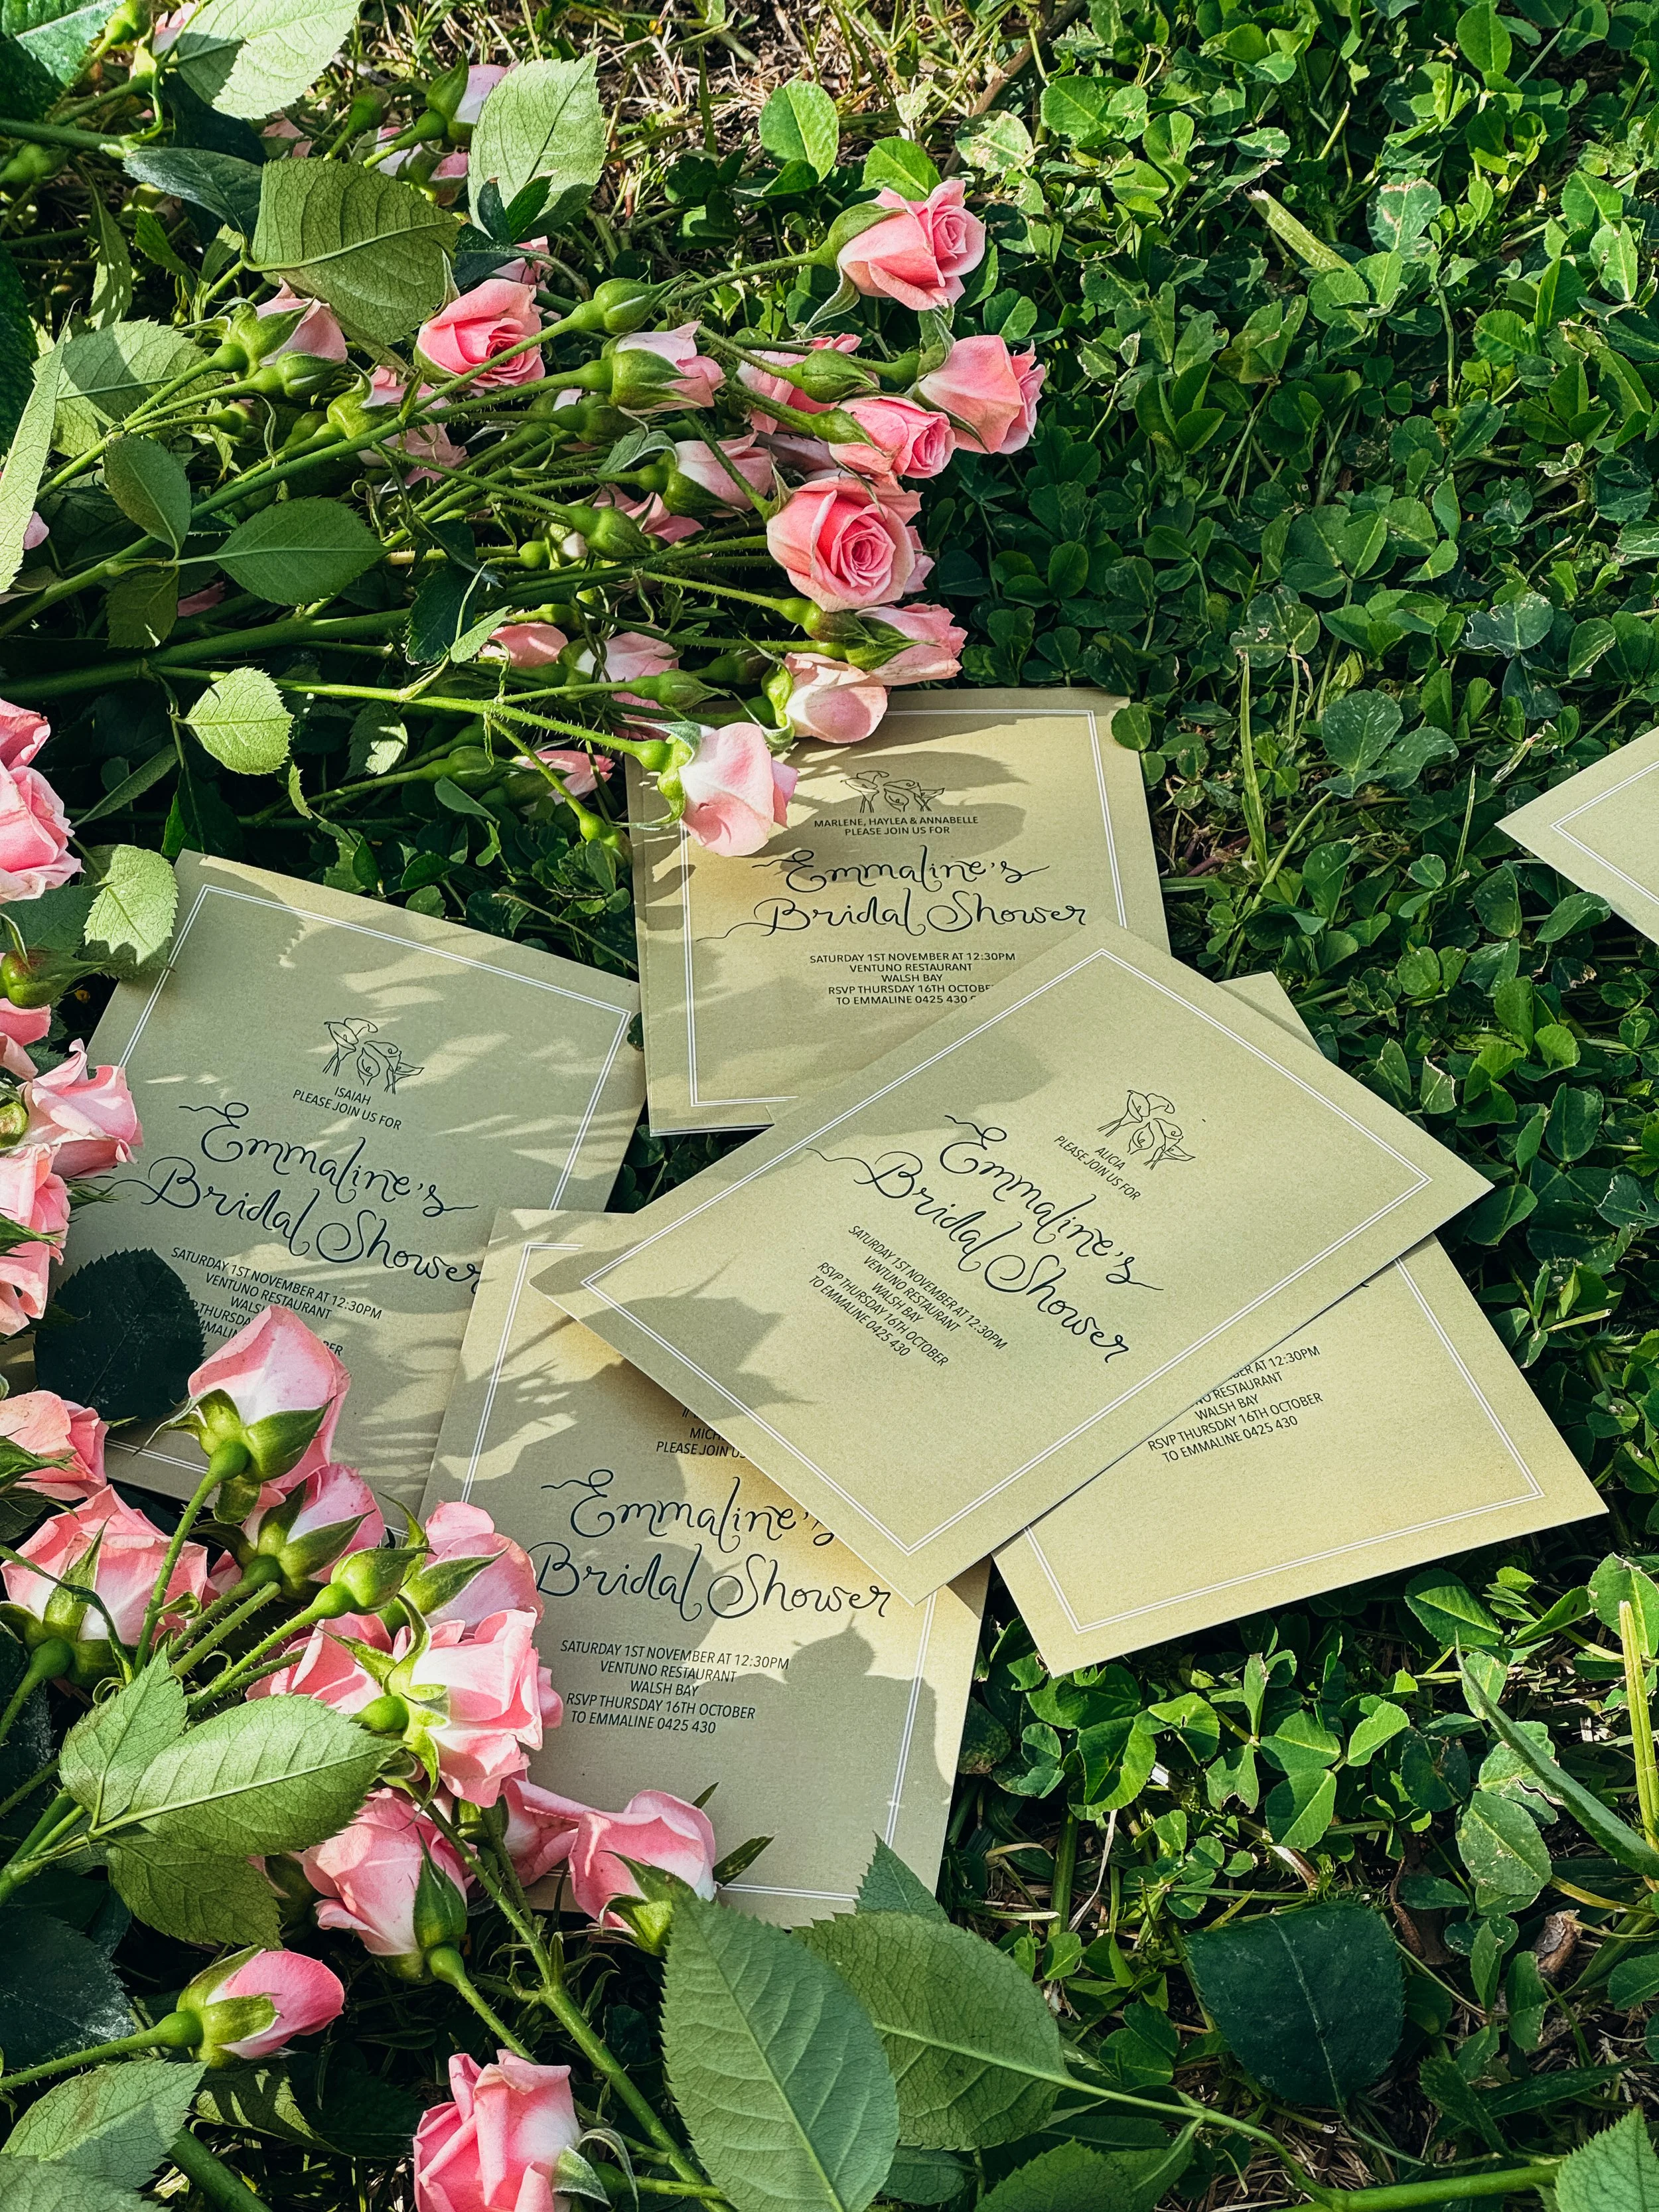 MARLENE, HAYLEA & ANNABELLE
PLEASE JOIN US FOR
Emmaline's
Bridal Shower
SATURDAY 1ST NOVEMBER AT 12:30PM
VENTUNO RESTAURANT
WALSH BAY
RSVP THURSDAY 16TH
TO EMMALINE 0425 430
ISAIAH
PLEASE JOIN US FOR
Emmaline's
Bridal Shower
SATURDAY 1ST NOVEMBER AT 12:30PM
VENTUNO RESTAURANT
ALICIA
PLEASE JOIN US FOR
Emmaline's
Bridal Shower
SATURDAY 1ST NOVEMBER AT 12:30PM
VENTUNO RESTAURANT
WALSH BAY
RSVP THURSDAY 16TH OCTOBER
TO EMMALINE 0425 430
PLEASE JOIN
Emmaline's
Bridal Shower
SATURDAY 1ST NOVEMBER AT 12:30PM
VENTUNO RESTAURANT
WALSH BAY
RSVP THURSDAY 16TH OCTOBER
TO EMMALINE 0425 430
AT 12:30PM
RESTAURANT
WALSH BAY
RSVP THURSDAY 16TH OCTOBER
TO EMMALINE 0425 430